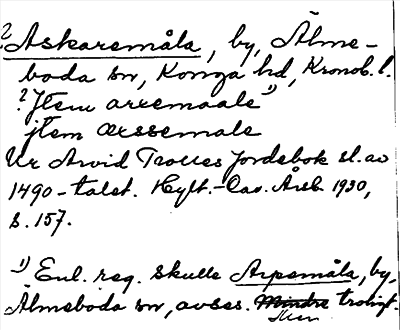 ? Askaremåla, by, Älme-
boda sn, Konga hd, Kronob. l.
? Jtem arremaale 1)
jtem ærssemale
Ur Arvid Trolles Jordebok sl. av
1490-talet. Hylt.-Cav. Årsb. 1930,
s. 157.
1) Enl. reg. skulle Arpemåla, by,
Älmeboda sn, avses. Mindre troligt.